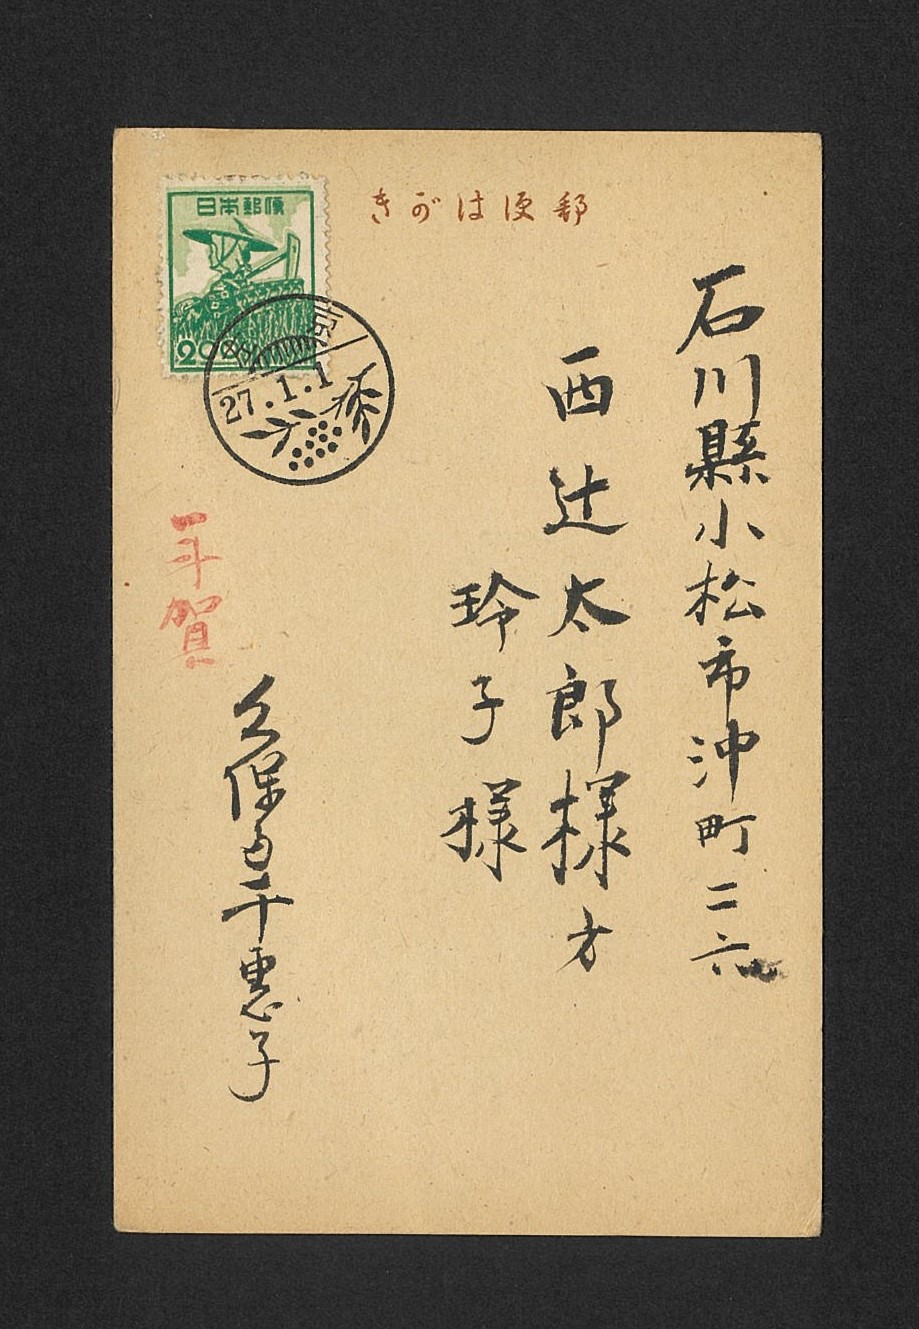 郵便はがき
日本郵便
200
京
27.1.1
石川縣小松市沖町二六
西辻太郎様方
玲子様
年賀
久保内千恵子